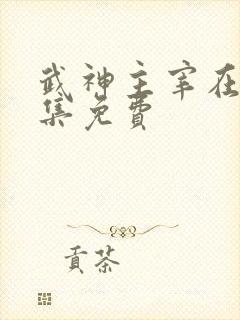 武神主宰在
集免费
贡茶